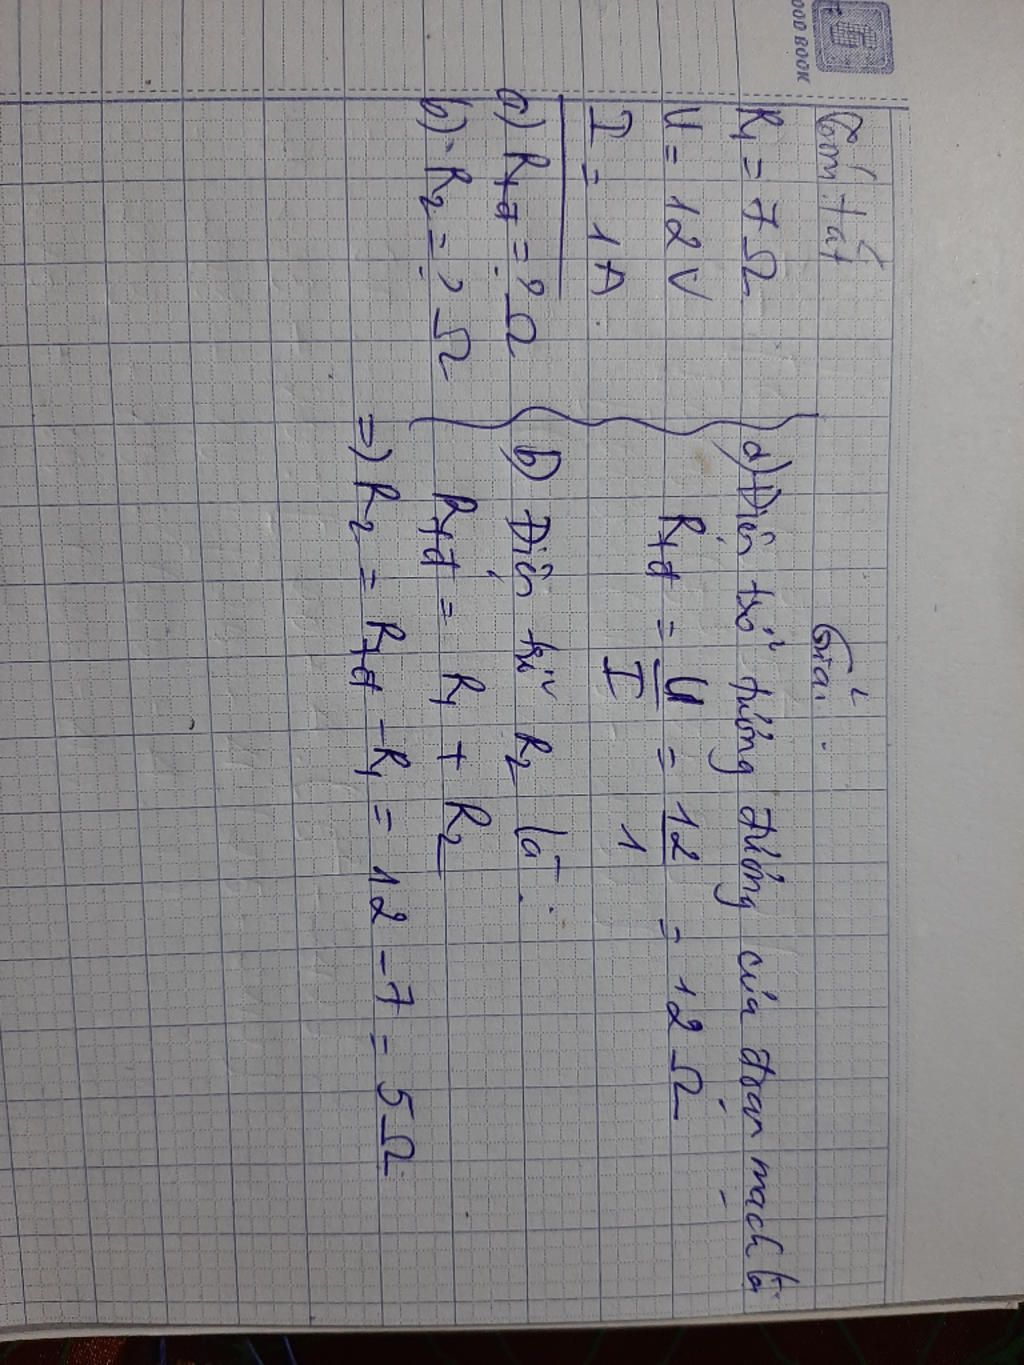 OOD BOOK
Tóm tắt
R₁ = 7Ω
U = 12V
I = 1A
a) Rtđ = ? Ω
b) R₂ = ? Ω
Giải
a) Điện trở tương đương của đoạn mạch là
Rtđ = U/I = 12/1 = 12Ω
b) Điện trở R₂ là :
Rtđ = R₁ + R₂
=> R₂ = Rtđ - R₁ = 12 - 7 = 5Ω